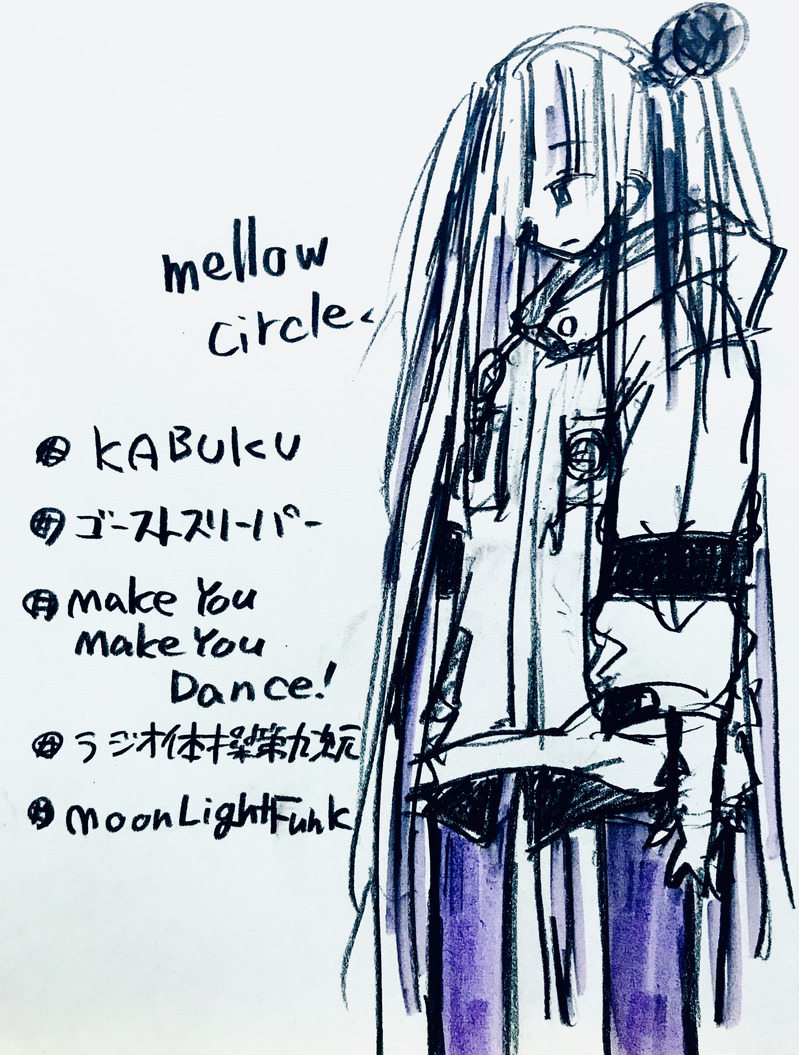 mellow
circle.
KABUKU
ゴーストスリーパー
make You
make You
Dance!
ラジオ体操第九次元
moonLightFunk